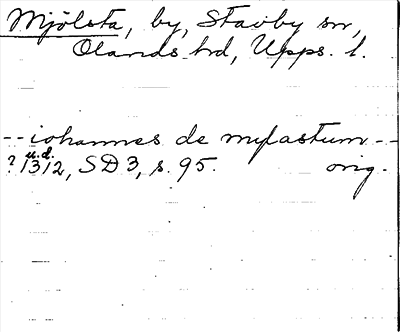 Mjölsta, by, Stavby sn,
Olands hd, Upps. l.
-- iohannes de mylastum --
u.d.
? 1312, SD3, s. 95. orig.